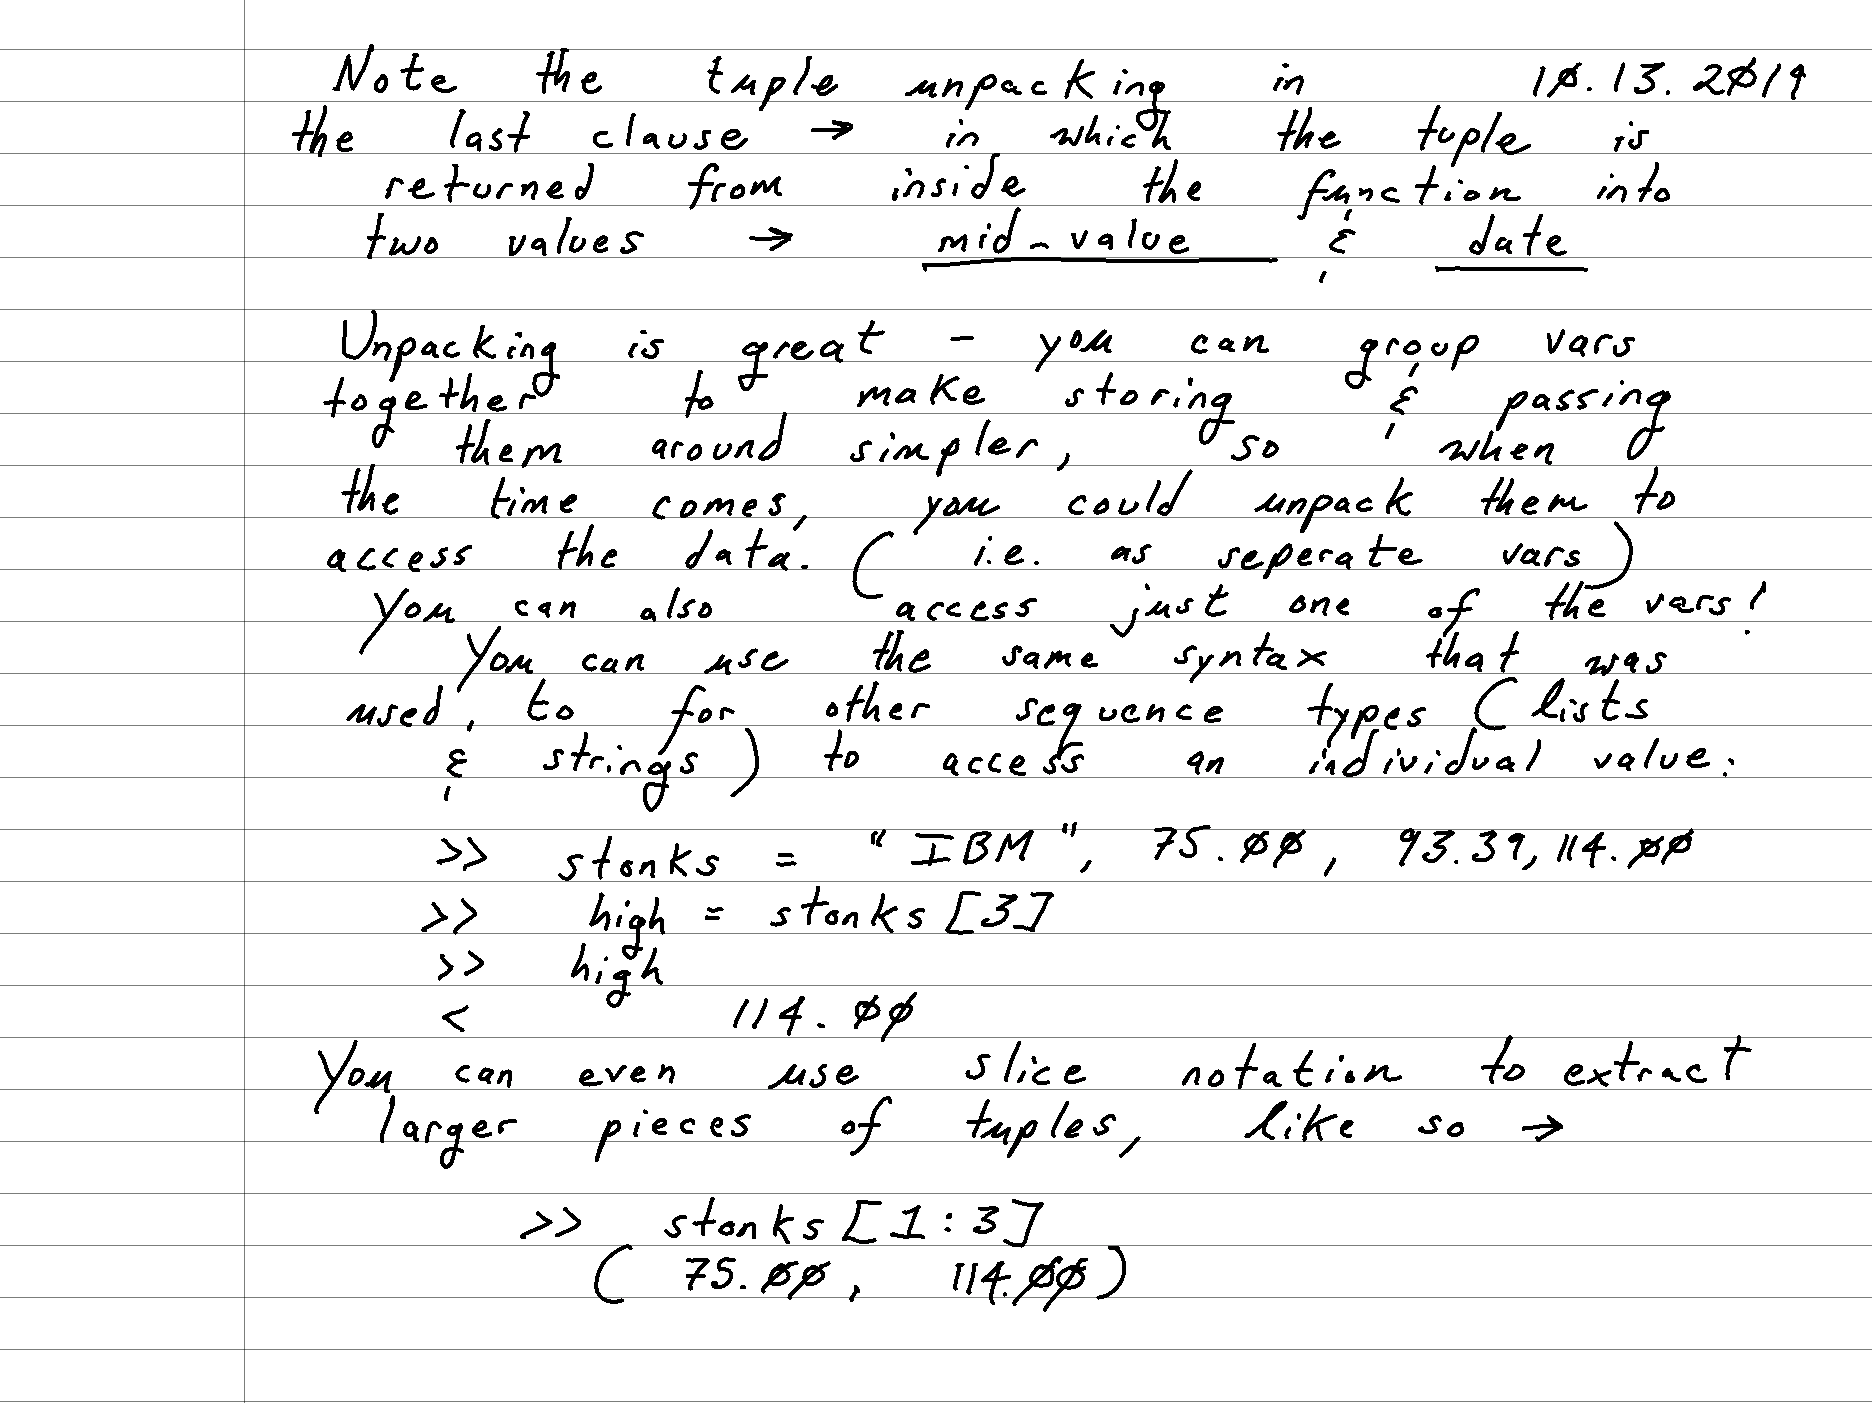 Note the tuple unpacking in 10.13.2019
the last clause → in which the tuple is
returned from inside the function into
two values → mid_value & date
Unpacking is great - you can group vars
together to make storing & passing
them around simpler, so when
the time comes, you could unpack them to
access the data. ( i.e. as seperate vars)
You can also access just one of the vars!
You can use the same syntax that was
used, to for other sequence types ( lists
& strings ) to access an individual value:
>> stonks = "IBM", 75.00, 93.39, 114.00
>> high = stonks [3]
>> high
< 114.00
You can even use slice notation to extract
larger pieces of tuples, like so →
>> stonks [1:3]
( 75.00, 114.00)